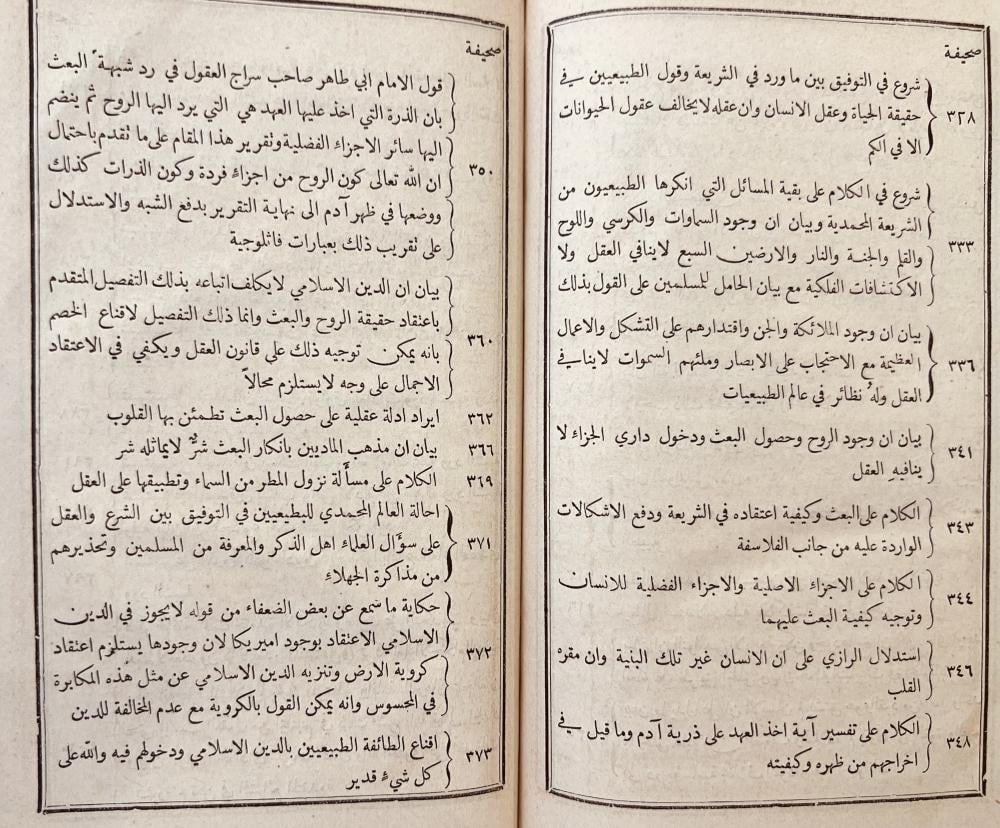 صحيفة
شروع في التوفيق بين ما ورد في الشريعة وقول الطبيعيين في
٣٢٨ حقيقة الحياة وعقل الانسان وان عقله لا يخالف عقول الحيوانات
الا في الكم
شروع في الكلام على بقية المسائل التي انكرها الطبيعيون من
الشريعة المحمدية وبيان ان وجود السماوات والكرسي واللوح
٣٣٣ والقلم والجنة والنار والارضين السبع لا ينافي العقل ولا
الاكتشافات الفلكية مع بيان الحامل للمسلمين على القول بذلك
بيان ان وجود الملائكة والجن واقتدارهم على التشكل والاعمال
٣٣٦ العظيمة مع الاحتجاب على الابصار وملئهم السموات لا ينافي
العقل وله نظائر في عالم الطبيعيات
٣٤١ بيان ان وجود الروح وحصول البعث ودخول داري الجزاء لا
ينافيه العقل
٣٤٣ الكلام على البعث وكيفية اعتقاده في الشريعة ودفع الاشكالات
الواردة عليه من جانب الفلاسفة
٣٤٤ الكلام على الاجزاء الاصلية والاجزاء الفضلية للانسان
وتوجيه كيفية البعث عليهما
٣٤٦ استدلال الرازي على ان الانسان غير تلك البنية وان مقره
القلب
٣٤٨ الكلام على تفسير آية اخذ العهد على ذرية آدم وما قيل في
اخراجهم من ظهره وكيفيته
صحيفة
قول الامام ابي طاهر صاحب سراج العقول في رد شبهة البعث
بان الذرة التي اخذ عليها العهد هي التي يرد اليها الروح ثم ينضم
اليها سائر الاجزاء الفضلية وتقرير هذا المقام على ما تقدم باحتمال
٣٥٠ ان الله تعالى كون الروح من اجزاءٍ فردة وكون الذرات كذلك
ووضعها في ظهر آدم الى نهاية التقرير بدفع الشبه والاستدلال
على تقريب ذلك بعبارات فاثلوجية
بيان ان الدين الاسلامي لا يكلف اتباعه بذلك التفصيل المتقدم
باعتقاد حقيقة الروح والبعث وانما ذلك التفصيل لاقناع الخصم
٣٦٠ بانه يمكن توجيه ذلك على قانون العقل ويكفي في الاعتقاد
الاجمال على وجه لا يستلزم محالاً
٣٦٢ ايراد ادلة عقلية على حصول البعث تطمئن بها القلوب
٣٦٦ بيان ان مذهب الماديين بانكار البعث شرٌّ لا يماثله شر
٣٦٩ الكلام على مسألة نزول المطر من السماء وتطبيقها على العقل
احالة العالم المحمدي للبطيعيين في التوفيق بين الشرع والعقل
٣٧١ على سؤال العلماء اهل الذكر والمعرفة من المسلمين وتحذيرهم
من مذاكرة الجهلاء
حكاية ما سمع عن بعض الضعفاء من قوله لا يجوز في الدين
الاسلامي الاعتقاد بوجود اميريكا لان وجودها يستلزم اعتقاد
٣٧٢ كروية الارض وتنزيه الدين الاسلامي عن مثل هذه المكابرة
في المحسوس وانه يمكن القول بالكروية مع عدم المخالفة للدين
٣٧٣ اقناع الطائفة الطبيعيين بالدين الاسلامي ودخولهم فيه والله على
كل شيءٍ قدير